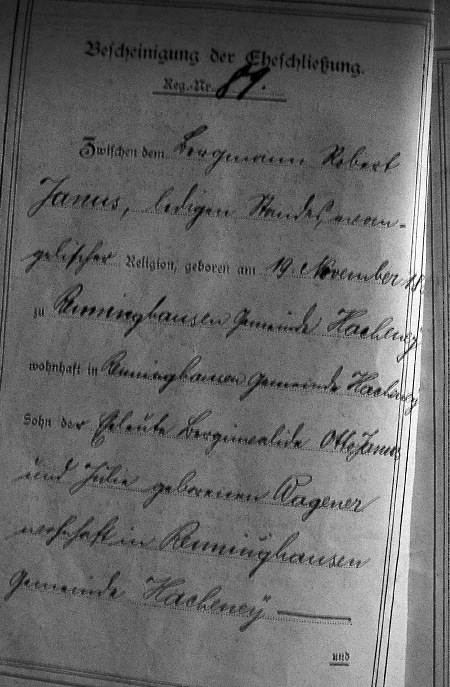 Bescheinigung der Eheschließung.
Reg.-Nr. 89.
Zwischen dem Bergmann Robert
Janus, ledigen Standes, evan-
gelischer Religion, geboren am 19. November 18
zu Renninghausen Gemeinde Hacheney
wohnhaft in Renninghausen Gemeinde Hacheney
Sohn der Eheleute Berginvalide Otto Janus
und Julie geborenen Wagener
wohnhaft in Renninghausen
Gemeinde Hacheney
und